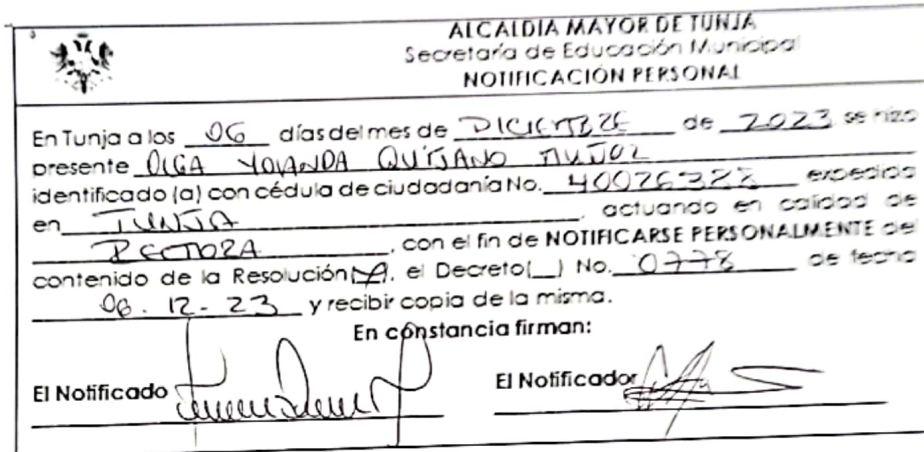 ALCALDIA MAYOR DE TUNJA
Secretaría de Educación Municipal
NOTIFICACIÓN PERSONAL
En Tunja a los 06 días del mes de DICIEMBRE de 2023 se hizo
presente OLGA YOLANDA QUIJANO MUÑOZ
identificado (a) con cédula de ciudadanía No. expedida
en TUNJA, actuando en calidad de
RECTORA, con el fin de NOTIFICARSE PERSONALMENTE del
contenido de la Resolución(X), el Decreto(__) No. 0778 de fecha
06.12-23 y recibir copia de la misma.
En constancia firman:
El Notificado
El Notificador